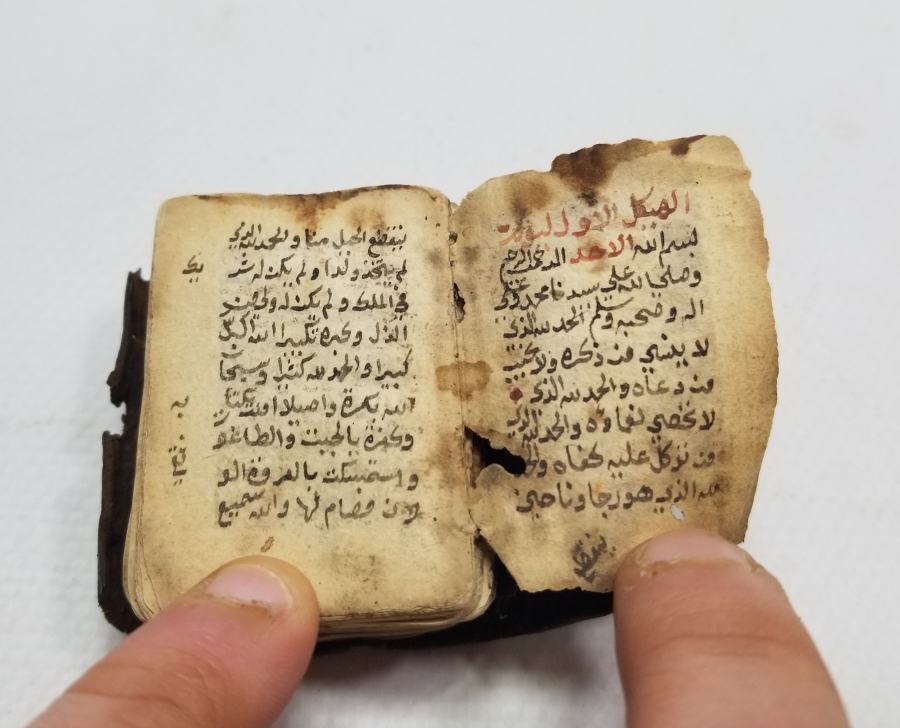 الهيكل الاول ليوم
الاحد بسم الله الرحمن الرحيم
وصلى الله على سيدنا محمد وعلى
اله وصحبه وسلم الحمد لله الذي
لا ينسي من ذكره ولا يخيب
من دعاه والحمد لله الذي
لا تحصي نعماوه والحمد لله الذي
من توكل عليه كفاه والحمد
لله الذي هو رجاونا حين
ينقطع
ينقطع الحيل منا والحمد لله الذي
لم يتخذ ولدا ولم يكن له شر
يك
في الملك ولم يكن له ولي من
الذل وكبره تكبيرا الله اكبر
كبيرا والحمد لله كثيرا وسبحان
الله بكرة واصيلا امنت
به
وكفرة بالجبت والطاغو
واستمسكت بالعروة الو
ثقي
لا انفصام لها والله سميع